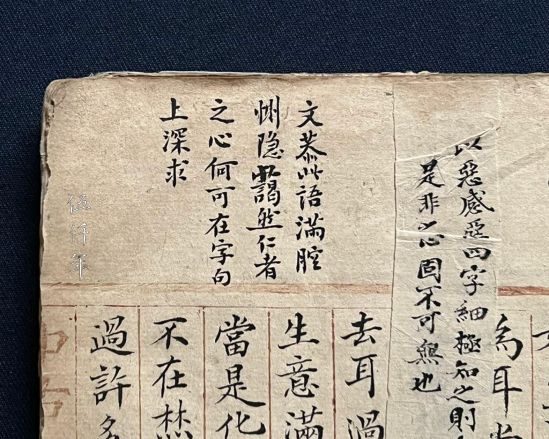 以惡感惡四字細極知之則
是非之心固不可無也
文恭此語滿腔
惻隐藹然仁者
之心何可在字句
上深求
為耳
去耳過
生意滿
當是化
不在焚
過許多
伍仟年